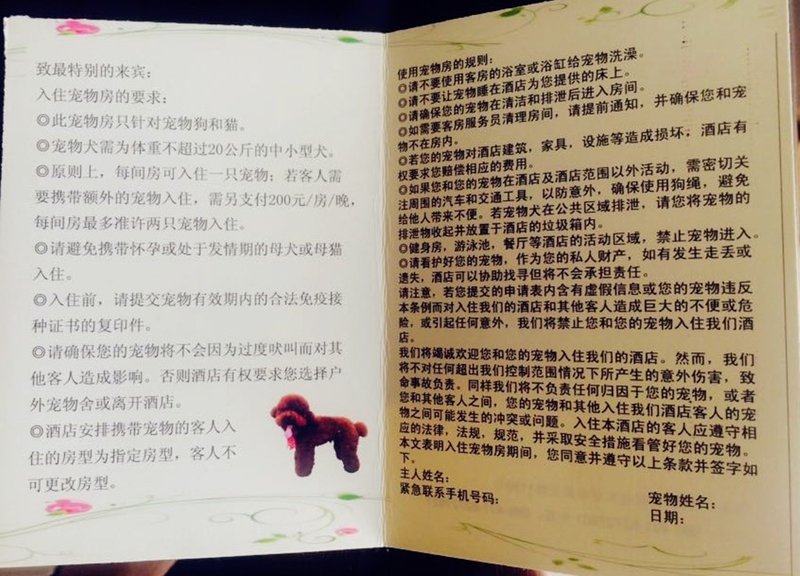 致最特别的来宾：
入住宠物房的要求：
◎此宠物房只针对宠物狗和猫。
◎宠物犬需为体重不超过20公斤的中小型犬。
◎原则上，每间房可入住一只宠物；若客人需
要携带额外的宠物入住，需另支付200元/房/晚，
每间房最多准许两只宠物入住。
◎请避免携带怀孕或处于发情期的母犬或母猫
入住。
◎入住前，请提交宠物有效期内的合法免疫接
种证书的复印件。
◎请确保您的宠物将不会因为过度吠叫而对其
他客人造成影响。否则酒店有权要求您选择户
外宠物舍或离开酒店。
◎酒店安排携带宠物的客人入
住的房型为指定房型，客人不
可更改房型。
使用宠物房的规则：
◎请不要使用客房的浴室或浴缸给宠物洗澡。
◎请不要让宠物睡在酒店为您提供的床上。
◎请确保您的宠物在清洁和排泄后进入房间。
◎如需要客房服务员清理房间，请提前通知，并确保您和宠
物不在房内。
◎若您的宠物对酒店建筑，家具，设施等造成损坏，酒店有
权要求您赔偿相应的费用。
◎如果您和您的宠物在酒店及酒店范围以外活动，需密切关
注周围的汽车和交通工具，以防意外，确保使用狗绳，避免
给他人带来不便。若宠物犬在公共区域排泄，请您将宠物的
排泄物收起并放置于酒店的垃圾箱内。
◎健身房，游泳池，餐厅等酒店的活动区域，禁止宠物进入。
◎请看护好您的宠物，作为您的私人财产，如有发生走丢或
遗失，酒店可以协助找寻但将不会承担责任。
请注意，若您提交的申请表内含有虚假信息或您的宠物违反
本条例而对入住我们的酒店和其他客人造成巨大的不便或危
险，或引起任何意外，我们将禁止您和您的宠物入住我们酒
店。
我们将竭诚欢迎您和您的宠物入住我们的酒店。然而，我们
将不对任何超出我们控制范围情况下所产生的意外伤害，致
命事故负责。同样我们将不负责任何归因于您的宠物，或者
您和其他客人之间，您的宠物和其他入住我们酒店客人的宠
物之间可能发生的冲突或问题。入住本酒店的客人应遵守相
应的法律，法规，规范，并采取安全措施看管好您的宠物。
本文表明入住宠物房期间，您同意并遵守以上条款并签字如
下。
主人姓名：
宠物姓名：
紧急联系手机号码：
日期：